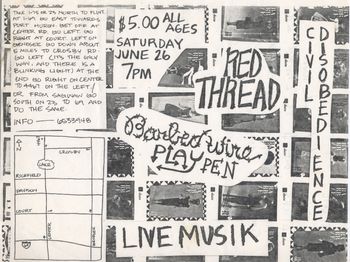 TAKE I-75 OR 23 NORTH TO FLINT.
AT I-69 GO EAST TOWARDS
PORT HURON. GET OFF AT
CENTER RD. GO LEFT. GO
RIGHT AT COURT. LEFT ON
GENESEE GO DOWN ABOUT
6 MILES TO CROSBY RD.
GO LEFT (ITS THE ONLY
WAY. AND THERE IS A
BLINKING LIGHT) AT THE
END GO RIGHT ON CENTER
TO 4467 ON THE LEFT./
OR FROM SAGINAW GO
SOUTH ON 23, TO 69 AND
DO THE SAME.
INFO —— 6533948
$5.00 ALL
AGES
SATURDAY
JUNE 26
7PM
RED
THREAD
CIVIL
DISOBEDIENCE
Barbed wire
PLAY PEN
LIVE MUSIK
CROSBY
LAKE
RICHFIELD
DAVISON
COURT
CENTER
GENESEE
69